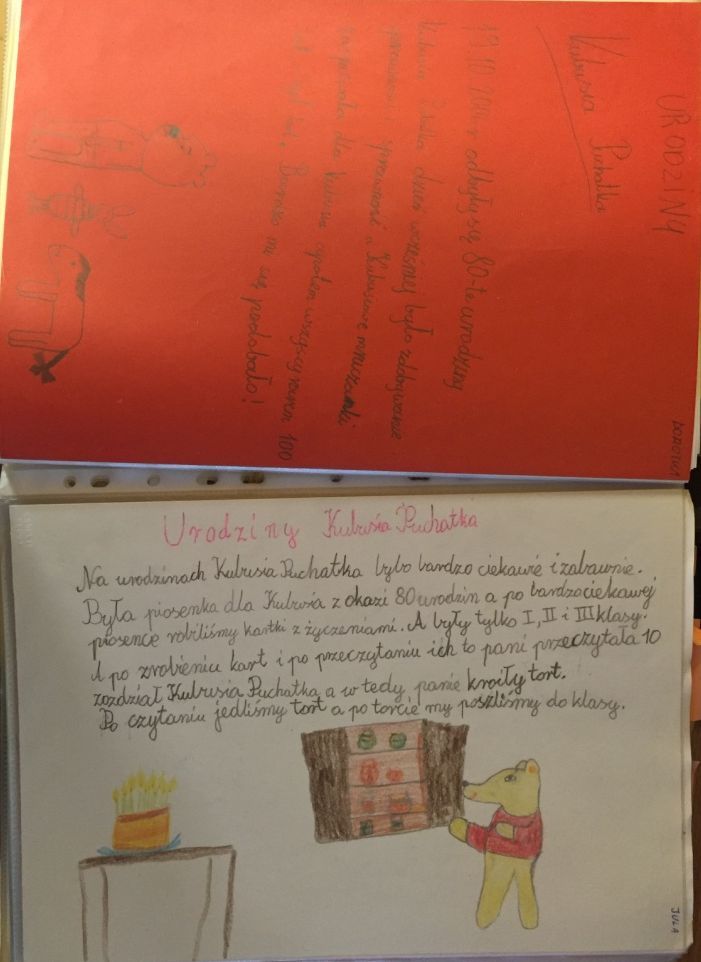 URODZINY
Kubusia Puchatka
19.10.2006r odbyły się 80-te urodziny
Kubusia dzień wcześniej było zdobywanie
sprawność "Kubusiowe mruczanki
zaśpiewała dla Kubusia wszyscy razem 100
lat Bardzo mi się podobało!
DOROTKA
Urodziny Kubusia Puchatka
Na urodzinach Kubusia Puchatka było bardzo ciekawie i zabawnie.
Była piosenka dla Kubusia z okazi 80 urodzin a po bardzo ciekawej
piosence robiliśmy kartki z życzeniami. A były tylko I, II i III klasy.
A po zrobieniu kart i po przeczytaniu ich to pani przeczytała 10
rozdział Kubusia Puchatka, a w tedy panie kroiły tort.
Po czytaniu jedliśmy tort a po torcie my poszliśmy do klasy.
JULA